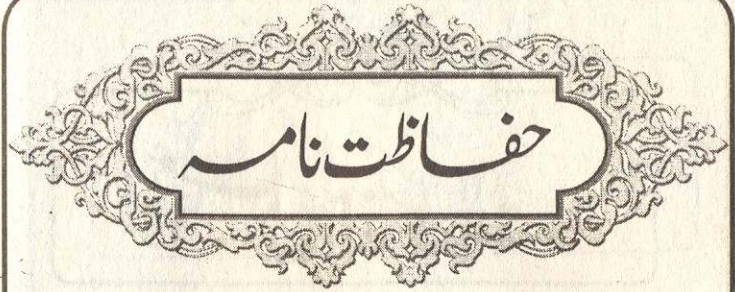 حفاظت نامہ